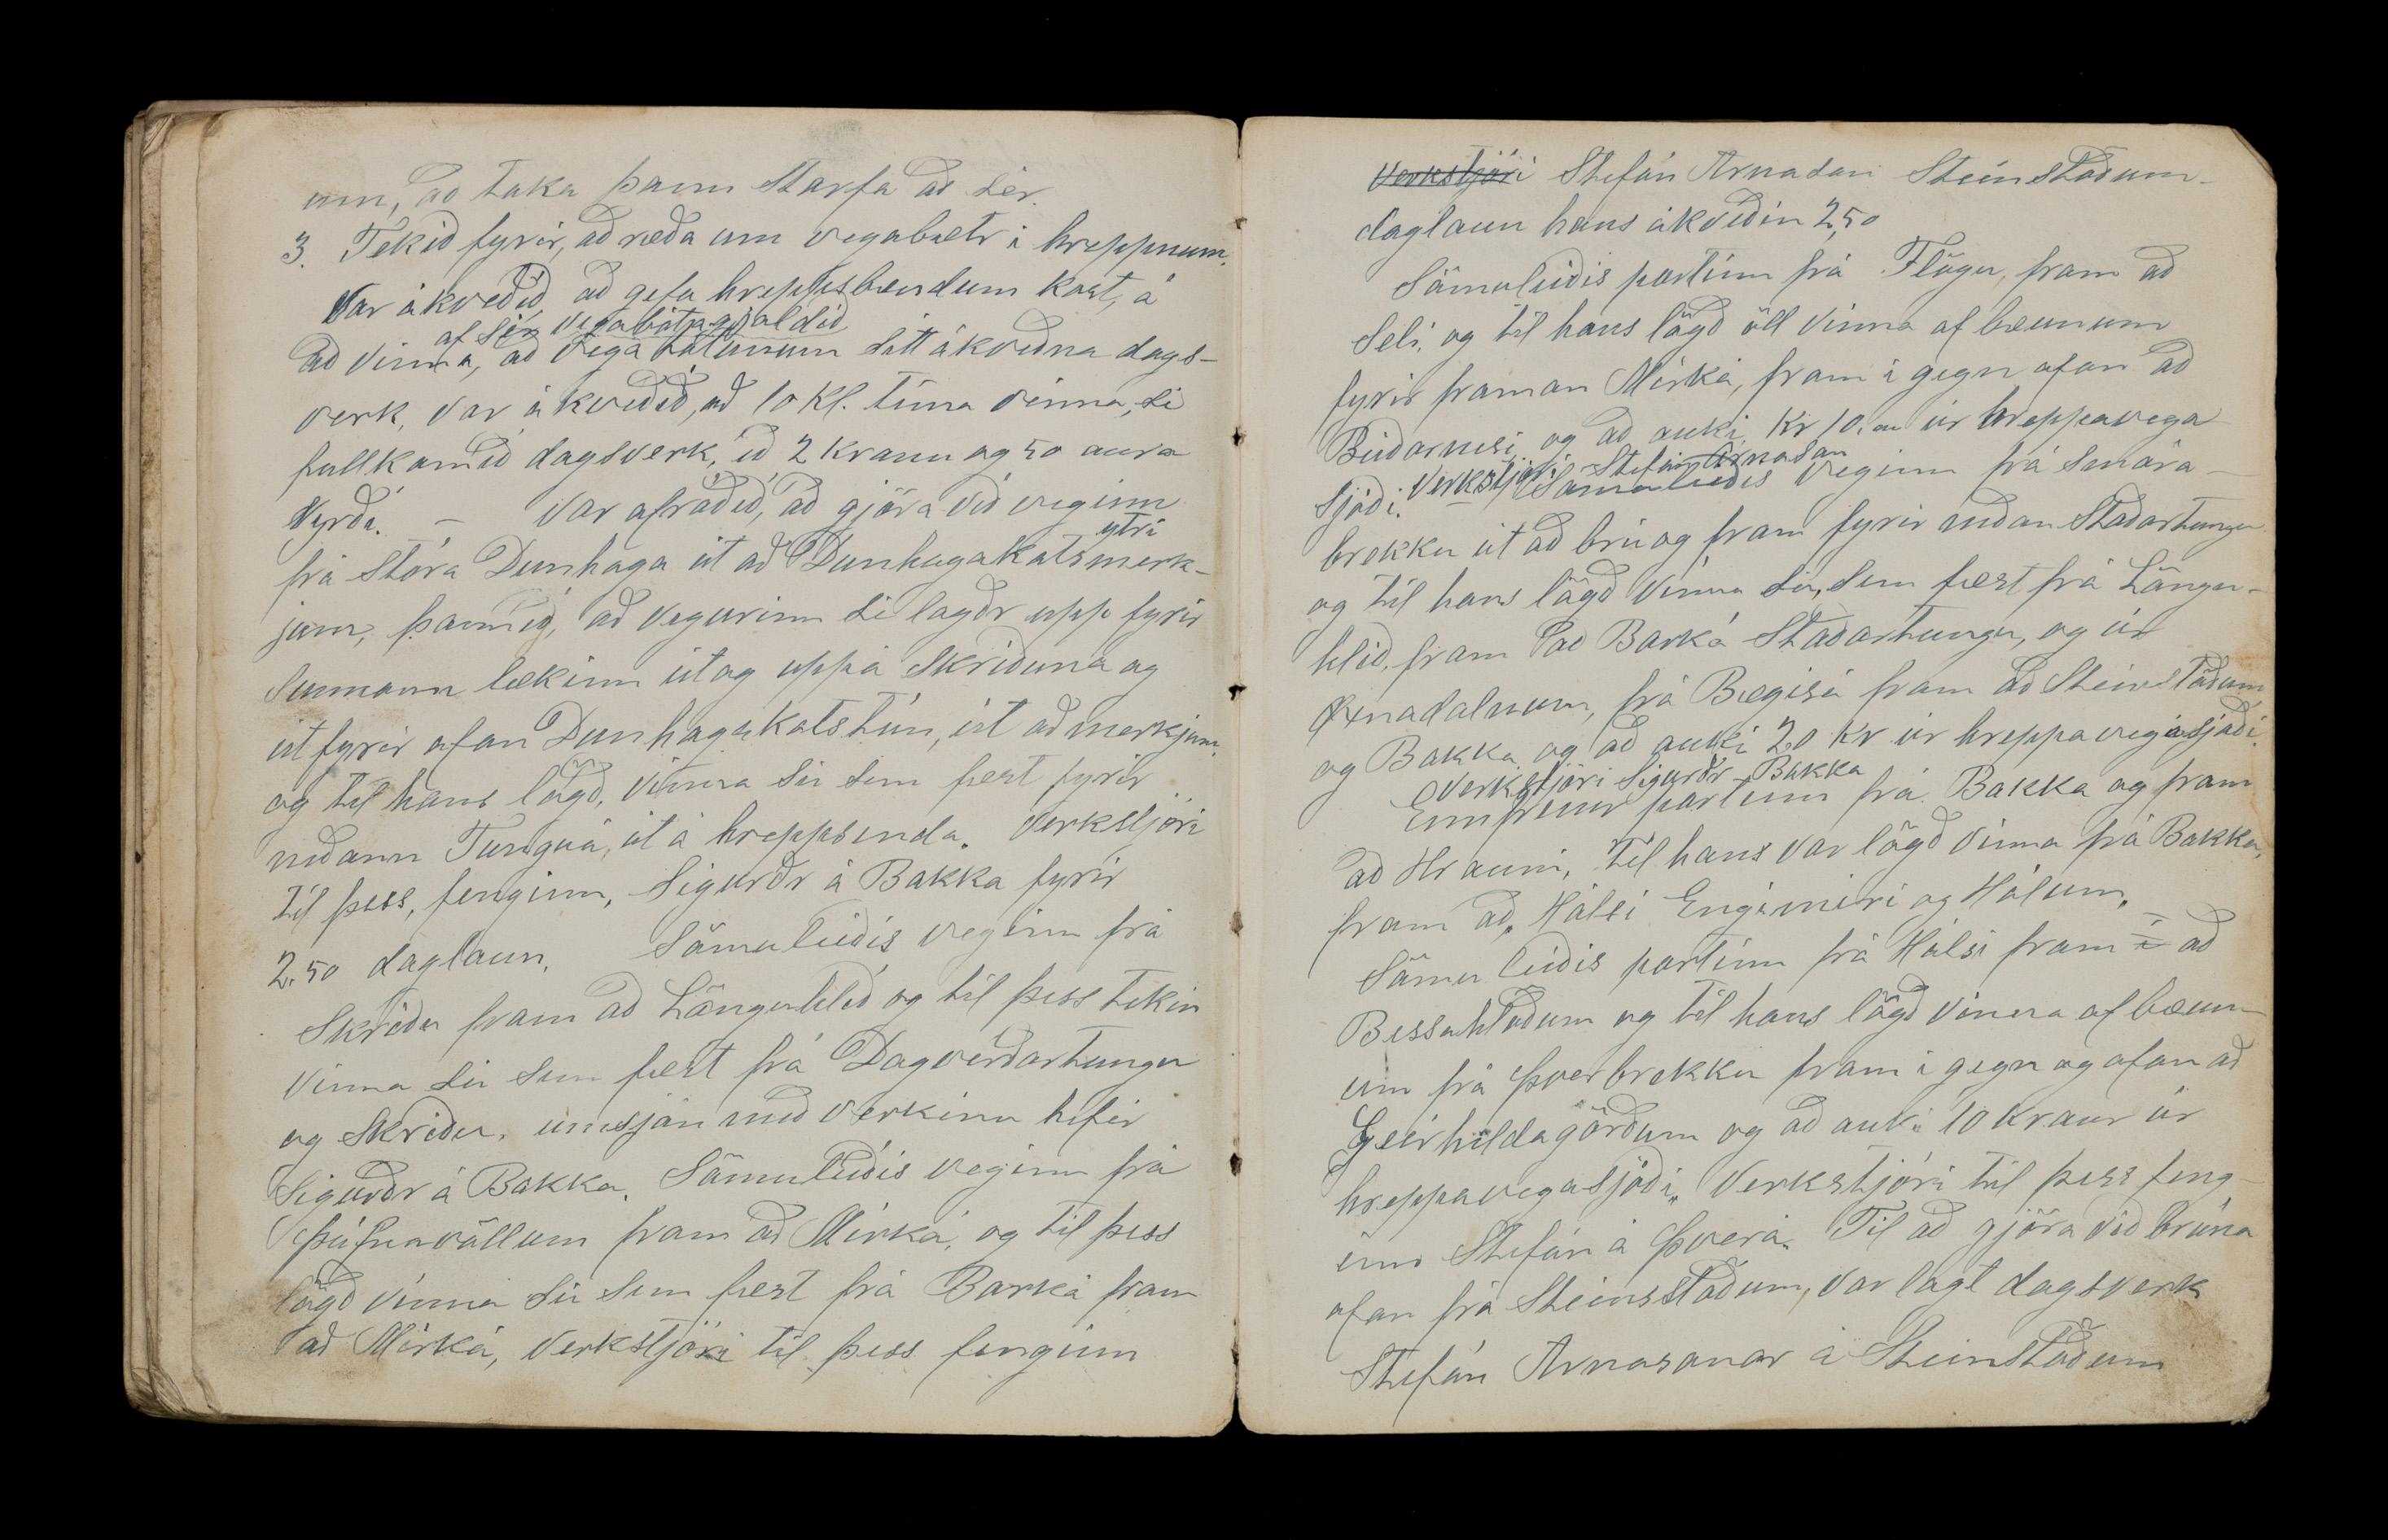 um, að taka þann starfa að sér.
3. Tekið fyrir, að ræða um vegabætr i hreppnum.
Var ákveðið að gefa hreppsbændum kost, á
af sér vegabótagjaldið
að vinna, að vegabótunum sitt ákveðna dags-
verk, var ákveðið, að 10 kl. tíma vinna, sé
fullkomið dagsverk, ið 2 kronu og 50 aura
Vyrði. – Var afráðið, að gjöra við veginn
ytri
frá Stóra Dunhaga út að Dunhagakotsmerk-
jum, þannig, að vegurinn sé lagðr upp fyrir
sunnann lækinn út og uppá Skriðuna og
út fyrir ofan Dunhagakotstún, út að merkjum.
og til hans lögð, vinna sú sem fæst fyrir
neðann Tunguá, út á hreppsenda. Verkstjóri
til þess, fenginn, Sigurðr á Bakka fyrir
2.50 daglaun. Sömuleiðis veginn frá
Skriðu fram að Lönguhlíð og til þess tekin
vinna sú sem fæst frá Dagverðartungu
og Skriðu. umsjón með verkinu hefir
Sigurðr á Bakka. Sömuleiðis veginn frá
Þúfnavöllum fram að Mirká, og til þess
lögð vinna sú sem fæst frá Barká fram
að Mirká, Verkstjóri til þess fenginn
Verkstjóri Stefán Arnason Steinstöðum-
daglaun hans ákveðin 2,50
Sömuleiðis partinn frá Flögu, fram að
Seli, og til hans lögð öll vinna af bæunum
fyrir framan Mirká, fram í gegn ofan að
Búðarnesi og að auki Kr 10.00 úr hreppavega
sjóði. Verkstjóri Stefán Arnason
Sömuleiðis veginn frá Smára-
brekku út að brú og fram fyrir neðan Staðartungu
og til hans lögð vinna sú, sem fæst frá Löngu-
hlíð, fram að Barká Staðartungu, og úr
Øxnadalnum, frá Bægisá fram að Steinstöðum
og Bakka og að auki 20 Kr úr hreppavegasjóði.
Verkstjóri Sigurðr Bakka
Ennfremr partinn frá Bakka og fram
að Hrauni, Til hans var lögð vinna frá Bakka,
fram að, Hálsi Engimiri og Hólum.
Sömuleiðis partinn frá Hálsi fram í að
Bessahlöðum og til hans lögð vinna af bæun-
um frá Þverbrekku fram í gegn og ofan að
Geirhildagörðum og að auki 10 Kronur úr
hreppavegasjóði. Verkstjóri til þess feng-
inn Stefán á Þverá. Til að gjöra við brúna
ofan frá Steinsstöðum, var lagt dagsverk
Stefán Arnasonar á Steinstöðum